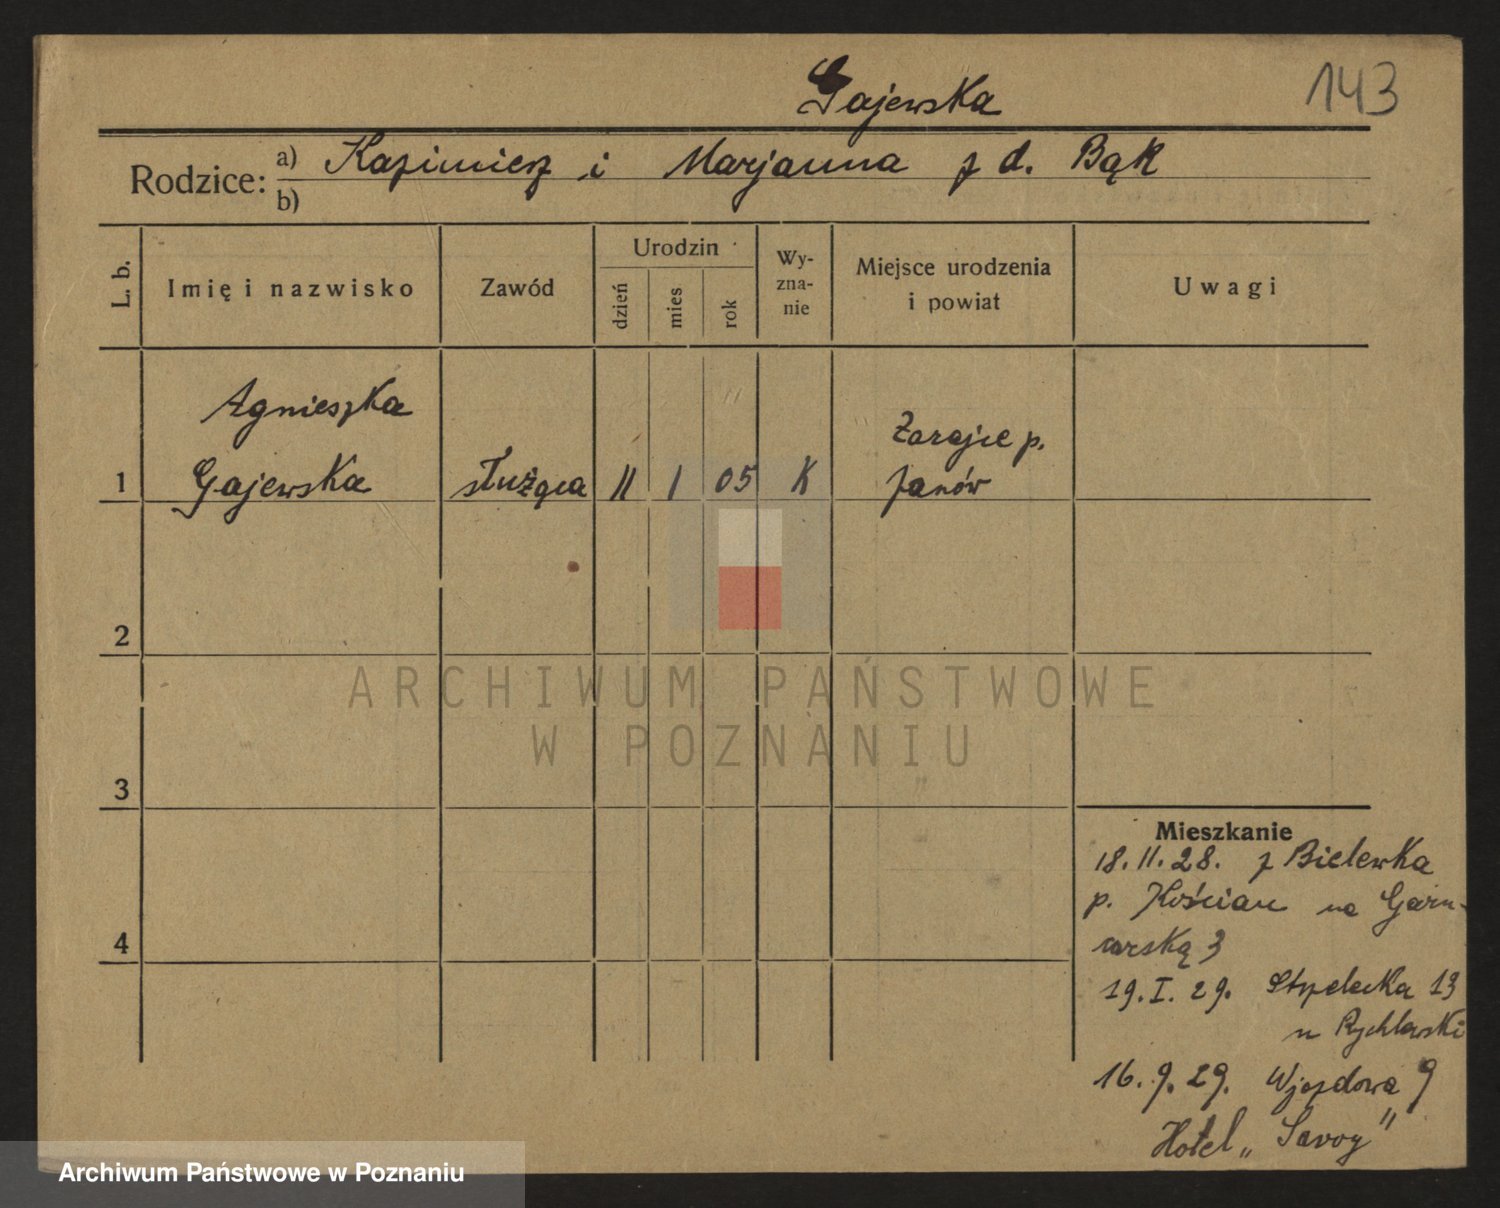 Gajewska
143
Rodzice: a) Kazimierz i Marjanna z d. Bąk
b)
L. b.
Imię i nazwisko
Zawód
Urodzin
dzień
mies
rok
Wy-
zna-
nie
Miejsce urodzenia
i powiat
Uwagi
Agnieszka
1 Gajewska służąca 11 1 05 K
Zarajce p.
Janów
2
3
4
Mieszkanie
18. 11. 28. z Bielewka
p. Kościan na Garn-
carską 3
19. I. 29. Strzelecka 13
u Rychlewski
16. 9. 29. Wjazdowa 9
Hotel „Savoy"
ARCHIWUM PAŃSTWOWE
W POZNANIU
Archiwum Państwowe w Poznaniu